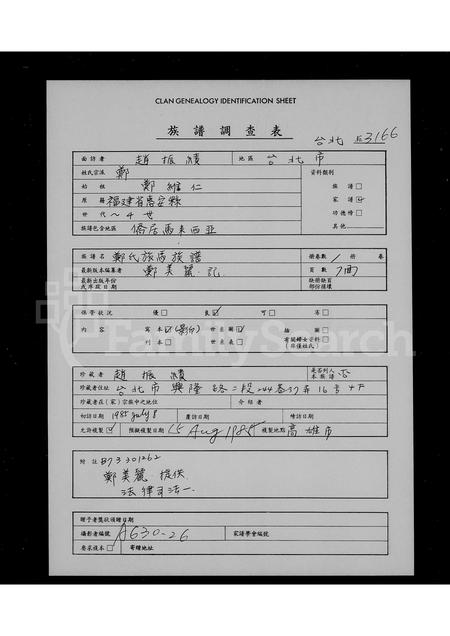 CLAN GENEALOGY IDENTIFICATION SHEET
族譜調查表
台北 3166
面訪者 趙振績 地區 台北市
姓氏宗派 鄭 資料類別
始祖 鄭維仁 族譜
原籍 福建省惠安縣 家譜
世代 ~4世 功德榜
族譜包含地區 僑居馬來西亞 其他
譜名 鄭氏旅馬族譜 冊卷數 冊 卷
最新版本編纂者 鄭美麗記 頁數
最新出版年份或序跋日期 缺冊缺頁部份損壞
保管狀況 優 良 可 劣
內容 寫本 (影印) 世系圖 插圖
刊本 世系表 有關婦女資料(非僅姓氏)
珍藏者 趙振績 是否列入本族譜 否
珍藏者住址 台北市興隆路二段244巷37弄16号4F
珍藏者在(家)宗族中之地位 介紹者
初訪日期 1985 July 8 覆訪日期 增訪日期
允許複製 預擬複製日期 15 Aug 1985 複製地點 高雄市
附註 873301262
鄭美麗提供
法律司法一
贈予者獎狀頒贈日期
攝影者編號 A630-26 家譜學會編號
要求複本 寄贈地址
FamilySearch